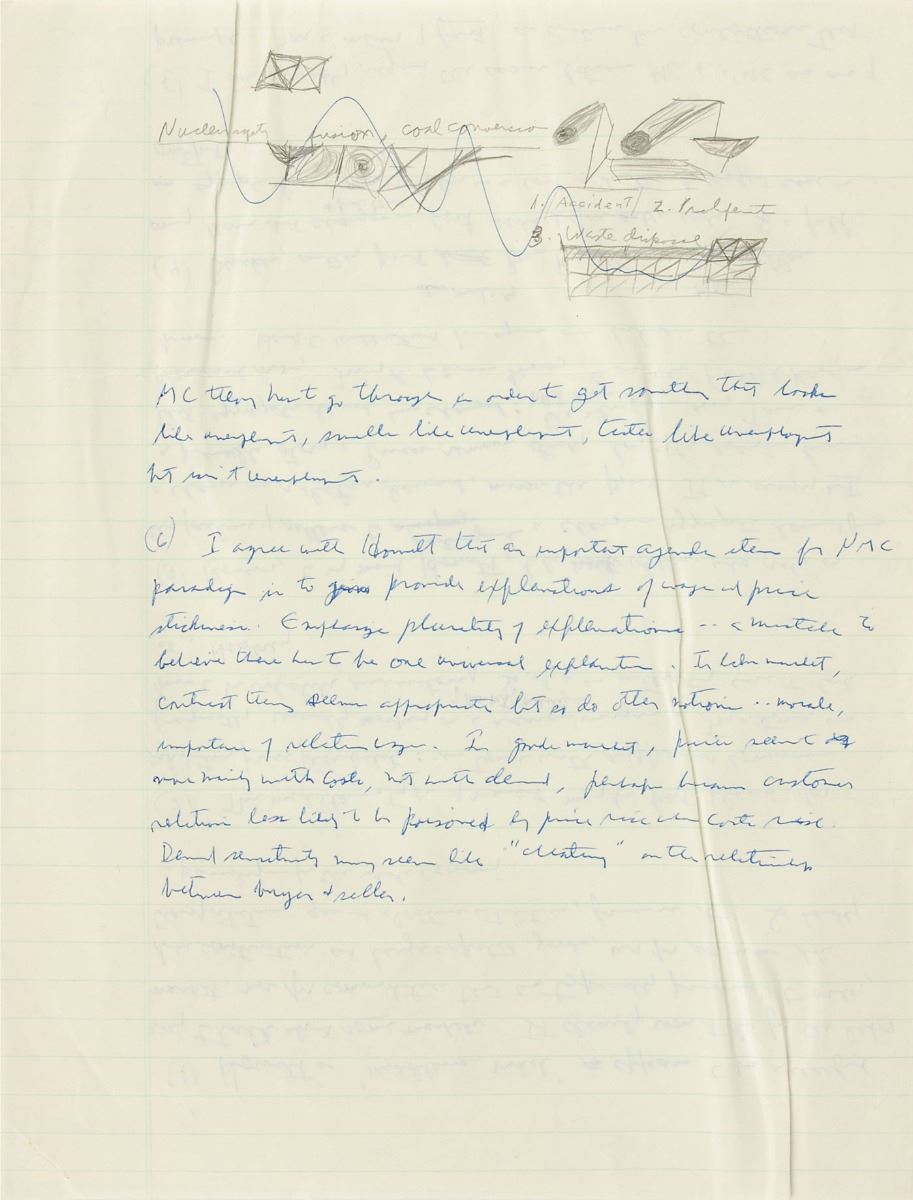 Nuclear fusion, coal conversion
1. Accident 2. Prolifent
3. Waste disposal
MC theory has to go through in order to get something that looks
like unemployment, smells like unemployment, tastes like unemployment
but isn't unemployment.
(6) I agree with Howitt that an important agenda item for NMC
paradigm is to provide explanations of wage and price
stickiness. Emphasize plurality of explanations -- a mistake to
believe there has to be one universal explanation. In labor market,
contract theory seems appropriate but so do other notions -- morale,
importance of relative wages. In goods market, prices seem to
move mainly with costs, not with demand, perhaps because customer
relations less likely to be poisoned by price rise when costs rise.
Demand sensitivity may seem like "cheating" on the relationship
between buyer & seller.